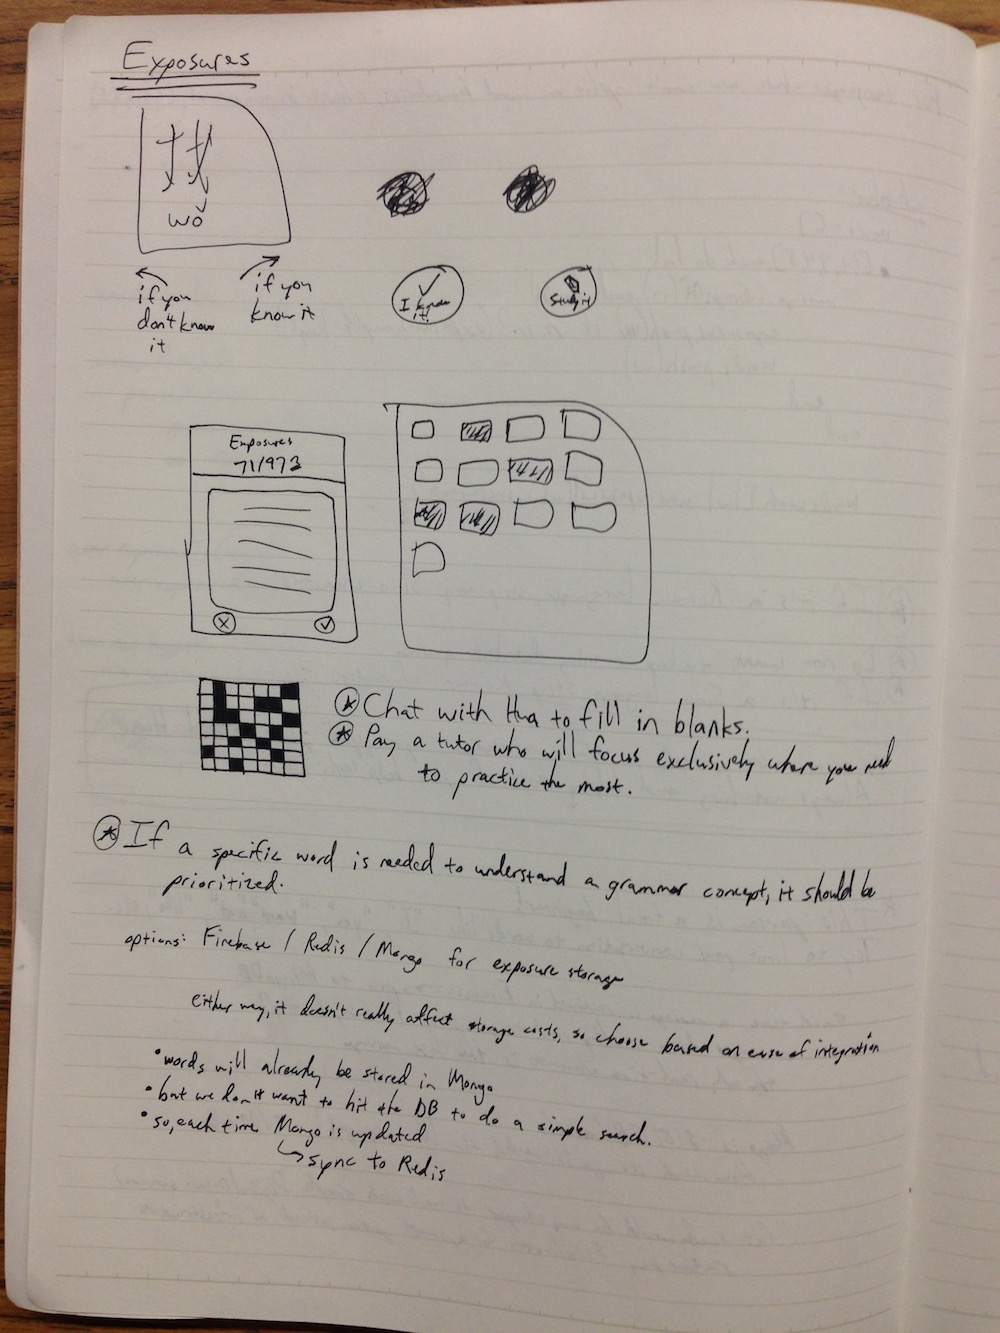 Exposures
我
wǒ
if you
don't know
it
if you
know it
I know
it!
Study it
Exposures
71/973
Chat with Hua to fill in blanks.
Pay a tutor who will focus exclusively where you need
to practice the most.
If a specific word is needed to understand a grammar concept, it should be
prioritized.
options: Firebase / Redis / Mongo for exposure storage
either way, it doesn't really affect storage costs, so choose based on ease of integration
• words will already be stored in Mongo
• but we don't want to hit the DB to do a simple search.
• so, each time Mongo is updated
↳ sync to Redis